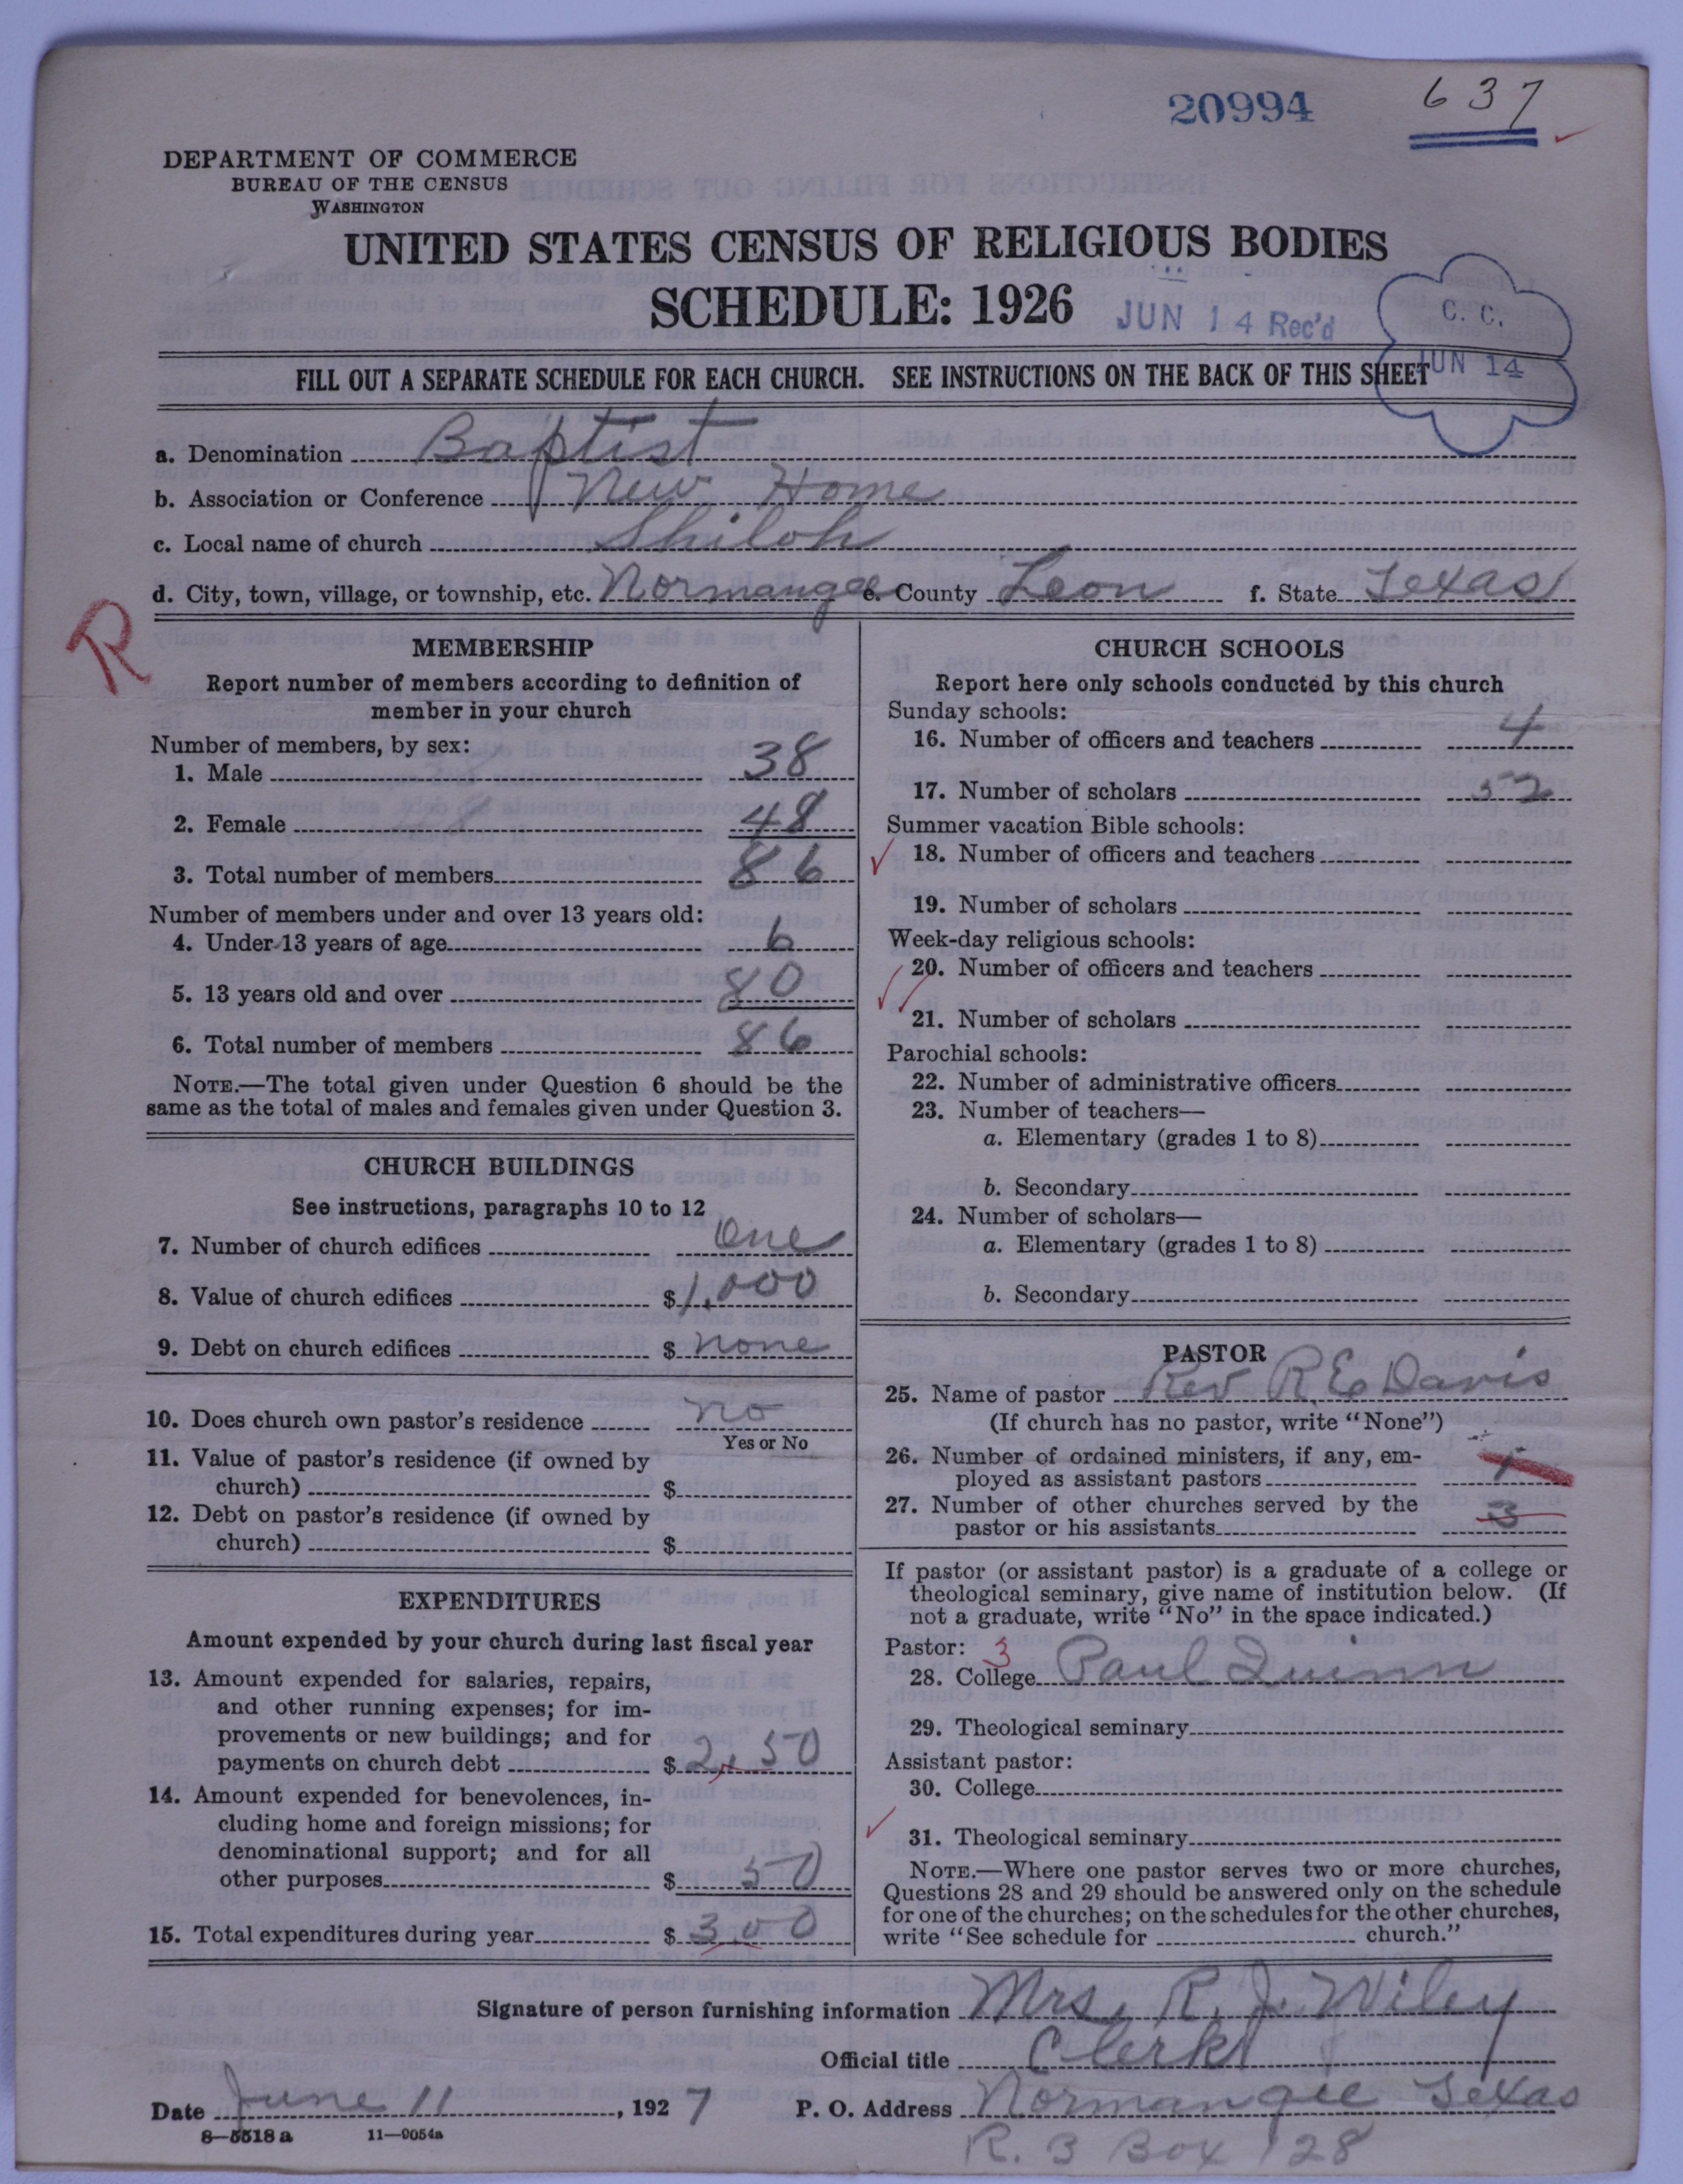 20994
637
DEPARTMENT OF COMMERCE
BUREAU OF THE CENSUS
WASHINGTON
UNITED STATES CENSUS OF RELIGIOUS BODIES
SCHEDULE: 1926
JUN 14 Rec'd
C. C.
JUN 14
FILL OUT A SEPARATE SCHEDULE FOR EACH CHURCH. SEE INSTRUCTIONS ON THE BACK OF THIS SHEET
a. Denomination Baptist
b. Association or Conference New Home
c. Local name of church Shiloh
d. City, town, village, or township, etc. Normangee e. County Leon f. State Texas
R
MEMBERSHIP
Report number of members according to definition of
member in your church
Number of members, by sex:
1. Male 38
2. Female 48
3. Total number of members 86
Number of members under and over 13 years old:
4. Under 13 years of age 6
5. 13 years old and over 80
6. Total number of members 86
NOTE.—The total given under Question 6 should be the
same as the total of males and females given under Question 3.
CHURCH BUILDINGS
See instructions, paragraphs 10 to 12
7. Number of church edifices One
8. Value of church edifices $1,000
9. Debt on church edifices $ none
10. Does church own pastor's residence no
Yes or No
11. Value of pastor's residence (if owned by
church) $
12. Debt on pastor's residence (if owned by
church) $
EXPENDITURES
Amount expended by your church during last fiscal year
13. Amount expended for salaries, repairs,
and other running expenses; for im-
provements or new buildings; and for
payments on church debt $ 2,50
14. Amount expended for benevolences, in-
cluding home and foreign missions; for
denominational support; and for all
other purposes $ 50
15. Total expenditures during year $ 300
CHURCH SCHOOLS
Report here only schools conducted by this church
Sunday schools:
16. Number of officers and teachers 4
17. Number of scholars 52
Summer vacation Bible schools:
18. Number of officers and teachers
19. Number of scholars
Week-day religious schools:
20. Number of officers and teachers
21. Number of scholars
Parochial schools:
22. Number of administrative officers
23. Number of teachers—
a. Elementary (grades 1 to 8)
b. Secondary
24. Number of scholars—
a. Elementary (grades 1 to 8)
b. Secondary
PASTOR
25. Name of pastor Rev R E Davis
(If church has no pastor, write "None")
26. Number of ordained ministers, if any, em-
ployed as assistant pastors 1
27. Number of other churches served by the
pastor or his assistants 3
If pastor (or assistant pastor) is a graduate of a college or
theological seminary, give name of institution below. (If
not a graduate, write "No" in the space indicated.)
Pastor: 3
28. College Paul Quinn
29. Theological seminary
Assistant pastor:
30. College
31. Theological seminary
NOTE.—Where one pastor serves two or more churches,
Questions 28 and 29 should be answered only on the schedule
for one of the churches; on the schedules for the other churches,
write "See schedule for church."
Signature of person furnishing information Mrs. R. J. Wiley
Official title Clerk
Date June 11, 1927 P. O. Address Normangee Texas
R. 3 Box 128
8—5518 a 11—9054a